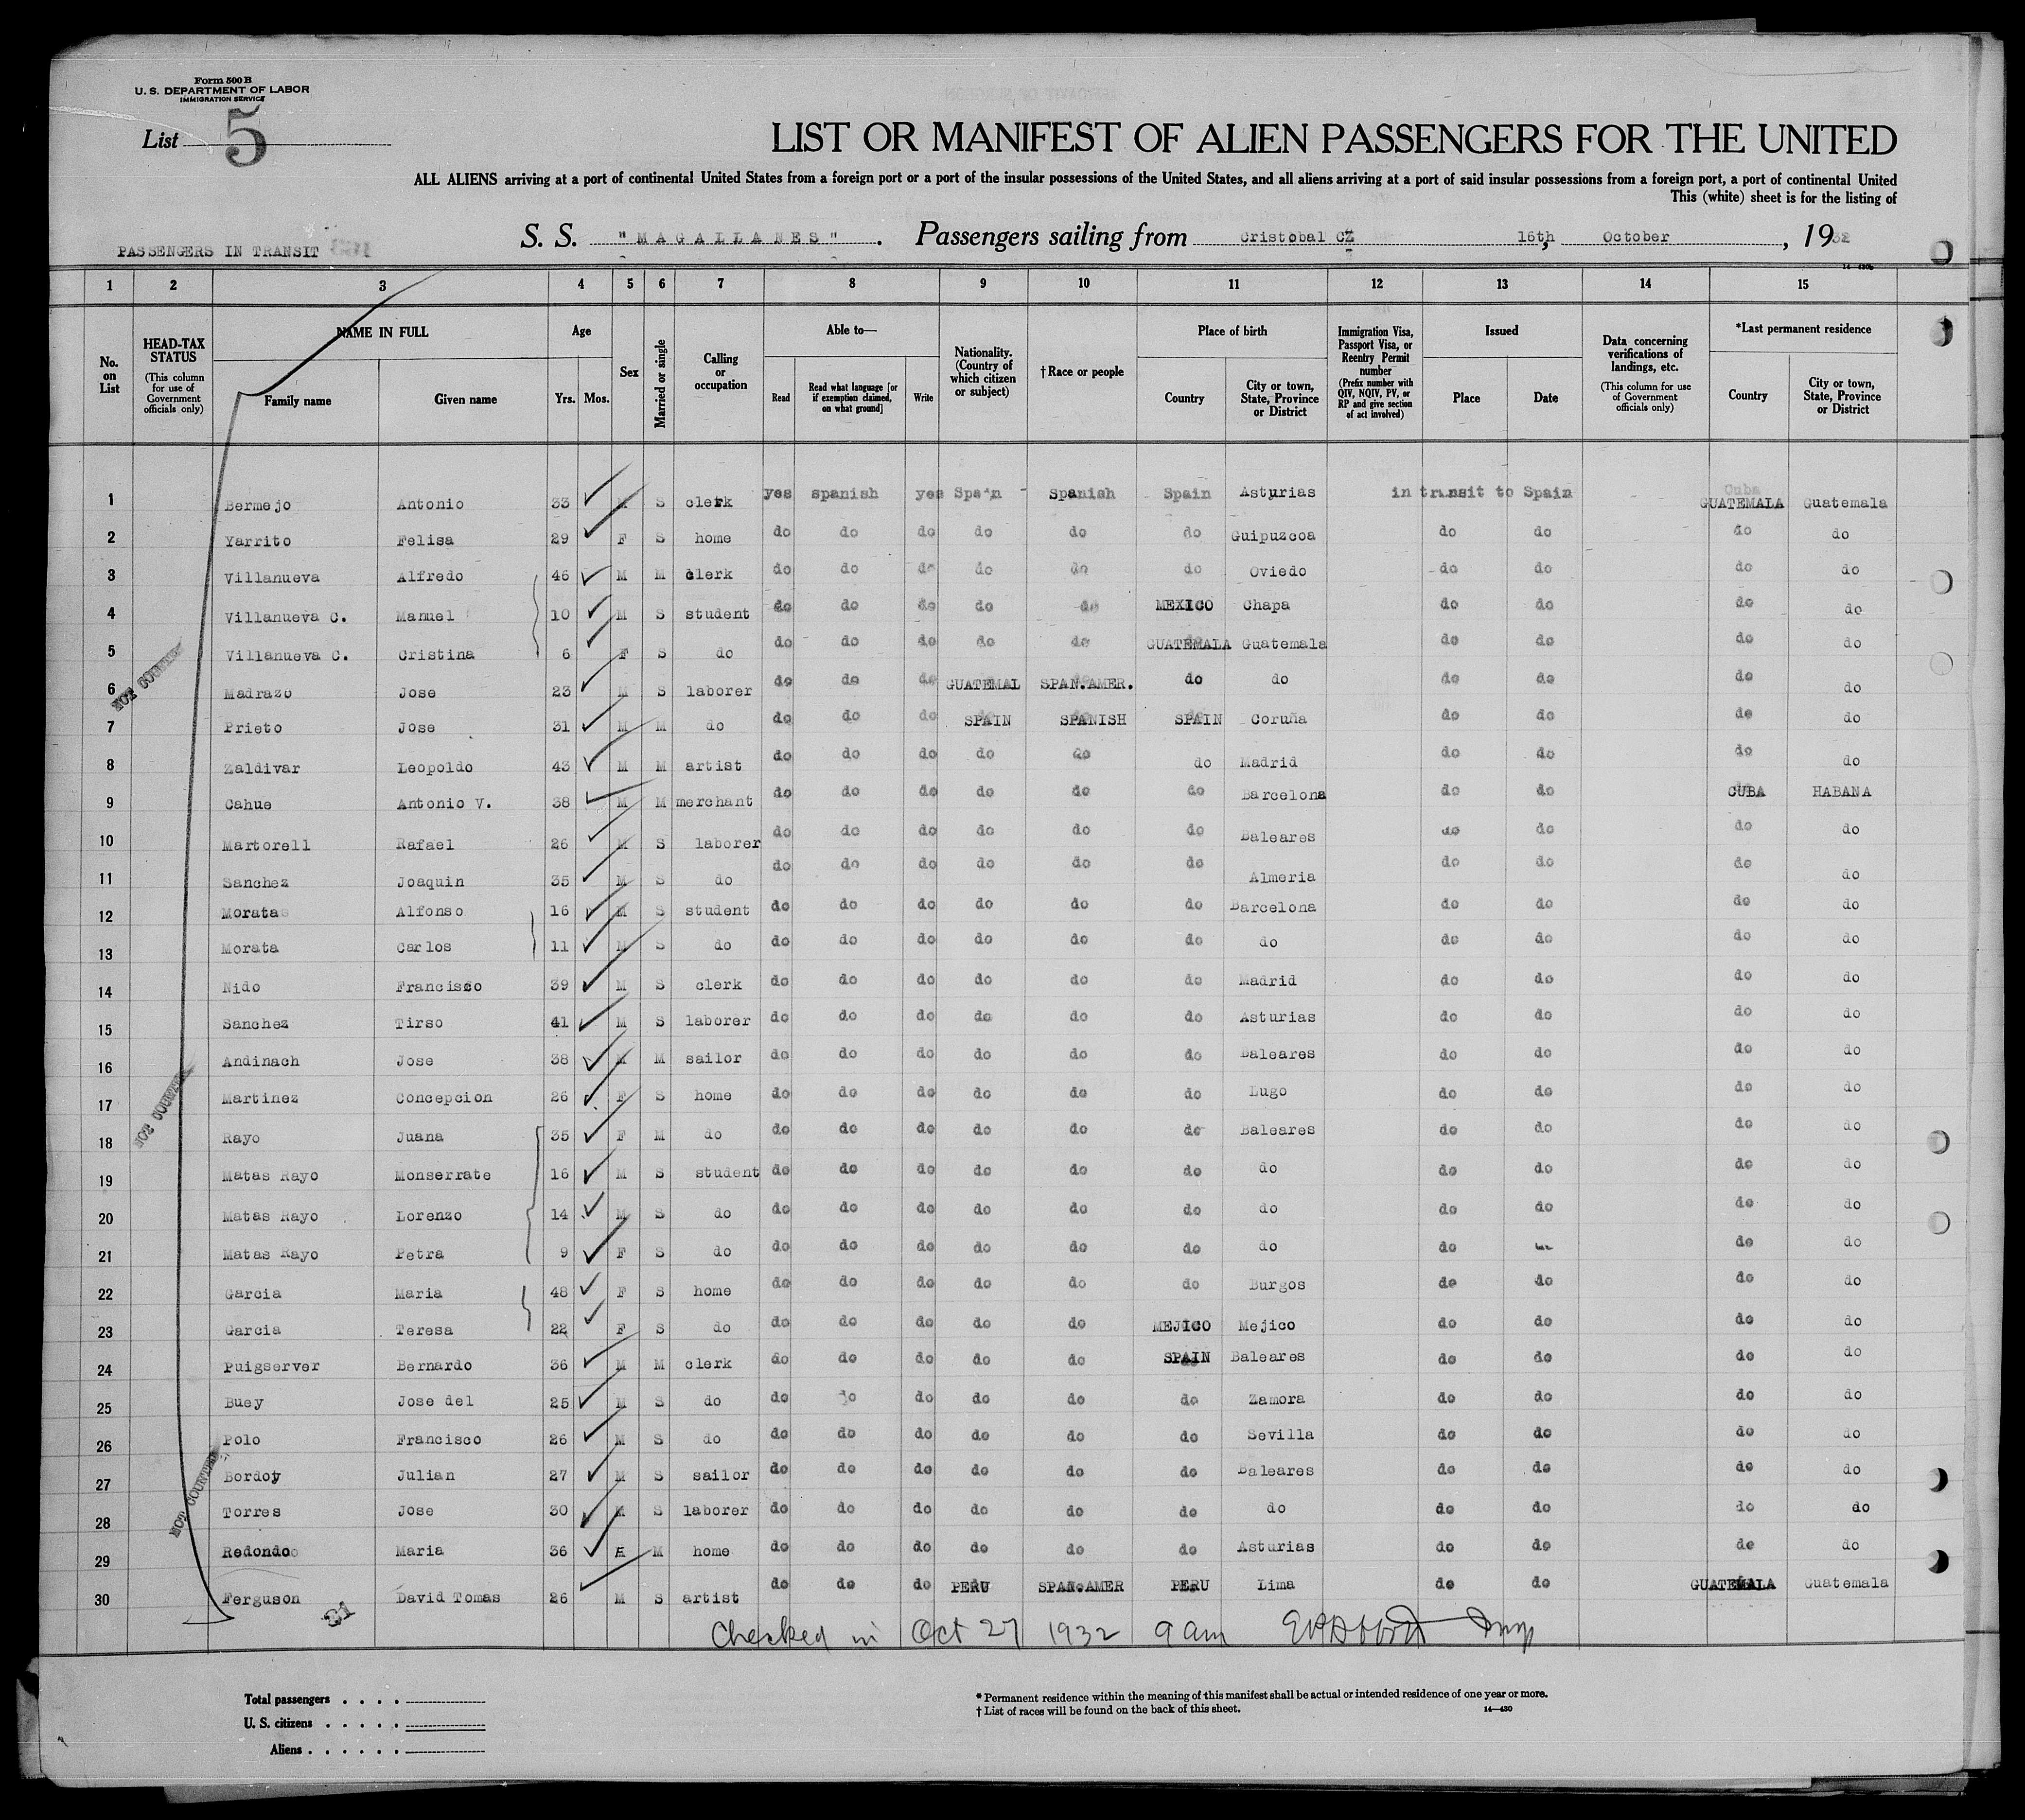 Form 500 B
U. S. DEPARTMENT OF LABOR
IMMIGRATION SERVICE
List 5
LIST OR MANIFEST OF ALIEN PASSENGERS FOR THE UNITED
ALL ALIENS arriving at a port of continental United States from a foreign port or a port of the insular possessions of the United States, and all aliens arriving at a port of said insular possessions from a foreign port, a port of continental United
This (white) sheet is for the listing of
S. S. "MAGALLANES". Passengers sailing from Cristobal CZ 16th, October, 1932
PASSENGERS IN TRANSIT
14—430b
1 2 3 4 5 6 7 8 9 10 11 12 13 14 15
No. on List
HEAD-TAX STATUS (This column for use of Government officials only)
NAME IN FULL
Family name
Given name
Age
Yrs. Mos.
Sex
Married or single
Calling or occupation
Able to—
Read
Read what language [or if exemption claimed, on what ground]
Write
Nationality. (Country of which citizen or subject)
† Race or people
Place of birth
Country
City or town, State, Province or District
Immigration Visa, Passport Visa, or Reentry Permit number (Prefix number with QIV, NQIV, PV, or RP and give section of act involved)
Issued
Place
Date
Data concerning verifications of landings, etc. (This column for use of Government officials only)
*Last permanent residence
Country
City or town, State, Province or District
1 Bermejo Antonio 33 M S clerk yes spanish yes Spain Spanish Spain Asturias in transit to Spain Cuba GUATEMALA Guatemala
2 Yarrito Felisa 29 F S home do do do do do do Guipuzcoa do do do do
3 Villanueva Alfredo 46 M M clerk do do do do do do Oviedo do do do do
4 Villanueva C. Manuel 10 M S student do do do do do MEXICO Chapa do do do do
5 Villanueva C. Cristina 6 F S do do do do do do GUATEMALA Guatemala do do do do
6 Madrazo Jose 23 M S laborer do do do GUATEMAL SPAN.AMER. do do do do do do
7 Prieto Jose 31 M M do do do do SPAIN SPANISH SPAIN Coruña do do do do
8 Zaldivar Leopoldo 43 M M artist do do do do do do Madrid do do do do
9 Cahue Antonio V. 38 M M merchant do do do do do do Barcelona do do CUBA HABANA
10 Martorell Rafael 26 M S laborer do do do do do do Baleares do do do do
11 Sanchez Joaquin 35 M S do do do do do do do Almeria do do do do
12 Moratas Alfonso 16 M S student do do do do do do Barcelona do do do do
13 Morata Carlos 11 M S do do do do do do do do do do do do
14 Nido Francisco 39 M S clerk do do do do do do Madrid do do do do
15 Sanchez Tirso 41 M S laborer do do do do do do Asturias do do do do
16 Andinach Jose 38 M M sailor do do do do do do Baleares do do do do
17 Martinez Concepcion 26 F S home do do do do do do Lugo do do do do
18 Rayo Juana 35 F M do do do do do do do Baleares do do do do
19 Matas Rayo Monserrate 16 M S student do do do do do do do do do do do
20 Matas Rayo Lorenzo 14 M S do do do do do do do do do do do do
21 Matas Rayo Petra 9 F S do do do do do do do do do do do do
22 Garcia Maria 48 F S home do do do do do do Burgos do do do do
23 Garcia Teresa 22 F S do do do do do do MEJICO Mejico do do do do
24 Puigserver Bernardo 36 M M clerk do do do do do SPAIN Baleares do do do do
25 Buey Jose del 25 M S do do do do do do do Zamora do do do do
26 Polo Francisco 26 M S do do do do do do do Sevilla do do do do
27 Bordoy Julian 27 M S sailor do do do do do do Baleares do do do do
28 Torres Jose 30 M S laborer do do do do do do do do do do do
29 Redondo Maria 36 F M home do do do do do do Asturias do do do do
30 Ferguson David Tomas 26 M S artist do do do PERU SPAN.AMER PERU Lima do do GUATEMALA Guatemala
NOT COUNTED
NOT COUNTED
NOT COUNTED
31
Checked in Oct 27 1932 9 am
Total passengers . . . .
U. S. citizens . . . . .
Aliens . . . . . .
* Permanent residence within the meaning of this manifest shall be actual or intended residence of one year or more.
† List of races will be found on the back of this sheet.
14—430